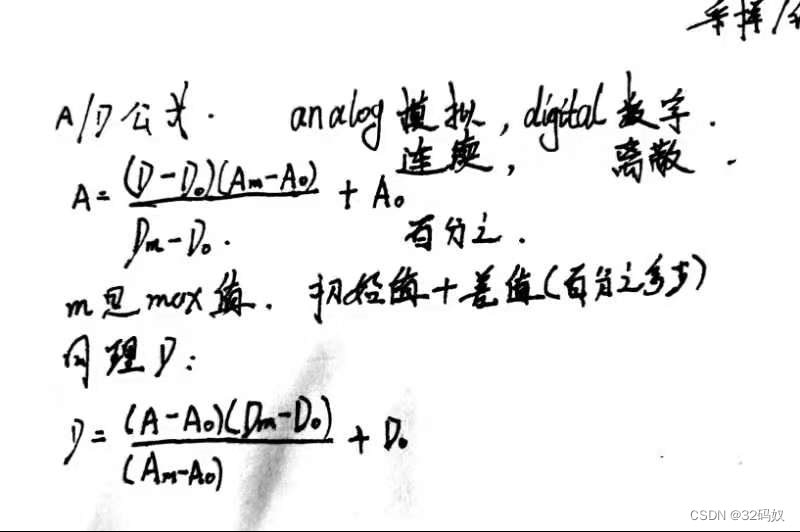 采样/
A/D公式. analog 模拟, digital 数字.
连续, 离散.
A = (D-D₀)(Aₘ-A₀) / Dₘ-D₀. + A₀
百分之.
m是max值. 初始值+差值(百分之多少)
同理D:
D = (A-A₀)(Dₘ-D₀) / (Aₘ-A₀) + D₀
CSDN @32码奴